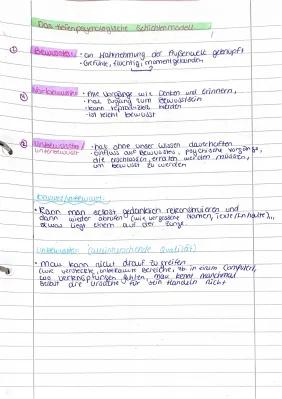 Das tiefenpsychologische Schichtenmodell
① Bewusstes: • an Wahrnehmung der Außenwelt geknüpft
• Gefühle, flüchtig, momentgebunden
Vorbewusstes • Alle Vorgänge wie Denken und Erinnern,
• hat Zugang zum Bewusstsein
• kann reproduziert werden
• ist leicht bewusst
Unbewusstes/ • hat ohne unser Wissen dauerhaften
unterbewusst Einfluss auf Bewusstes, psychische Vorgänge,
die erschlossen, erraten werden müssen,
um bewusst zu werden
• Kann man selbst gedanklich rekonstruieren und
dann wieder abrufen (wie vergessene Namen, Texte/Inhalte),
etwas liegt einem auf der Zunge.
unbewusstes
• Man kann nicht drauf zugreifen
(wie versteckte, unbekannte Bereiche, zb in einem Computer),
wo Verknüpfungen fehlen, man kennt manchmal
selbst die Ursache für sein Handeln nicht